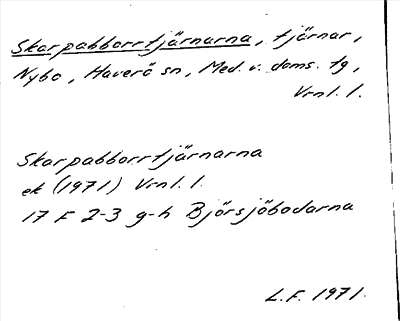 Skarpabborrtjärnarna, tjärnar,
Nybo, Haverö sn, Med. v. doms. tg,
Vrnl. l.
Skarpabborrtjärnarna
ek (1971) Vrnl. l.
17 F 2-3 g-h Björsjöbodarna
L.F. 1971.